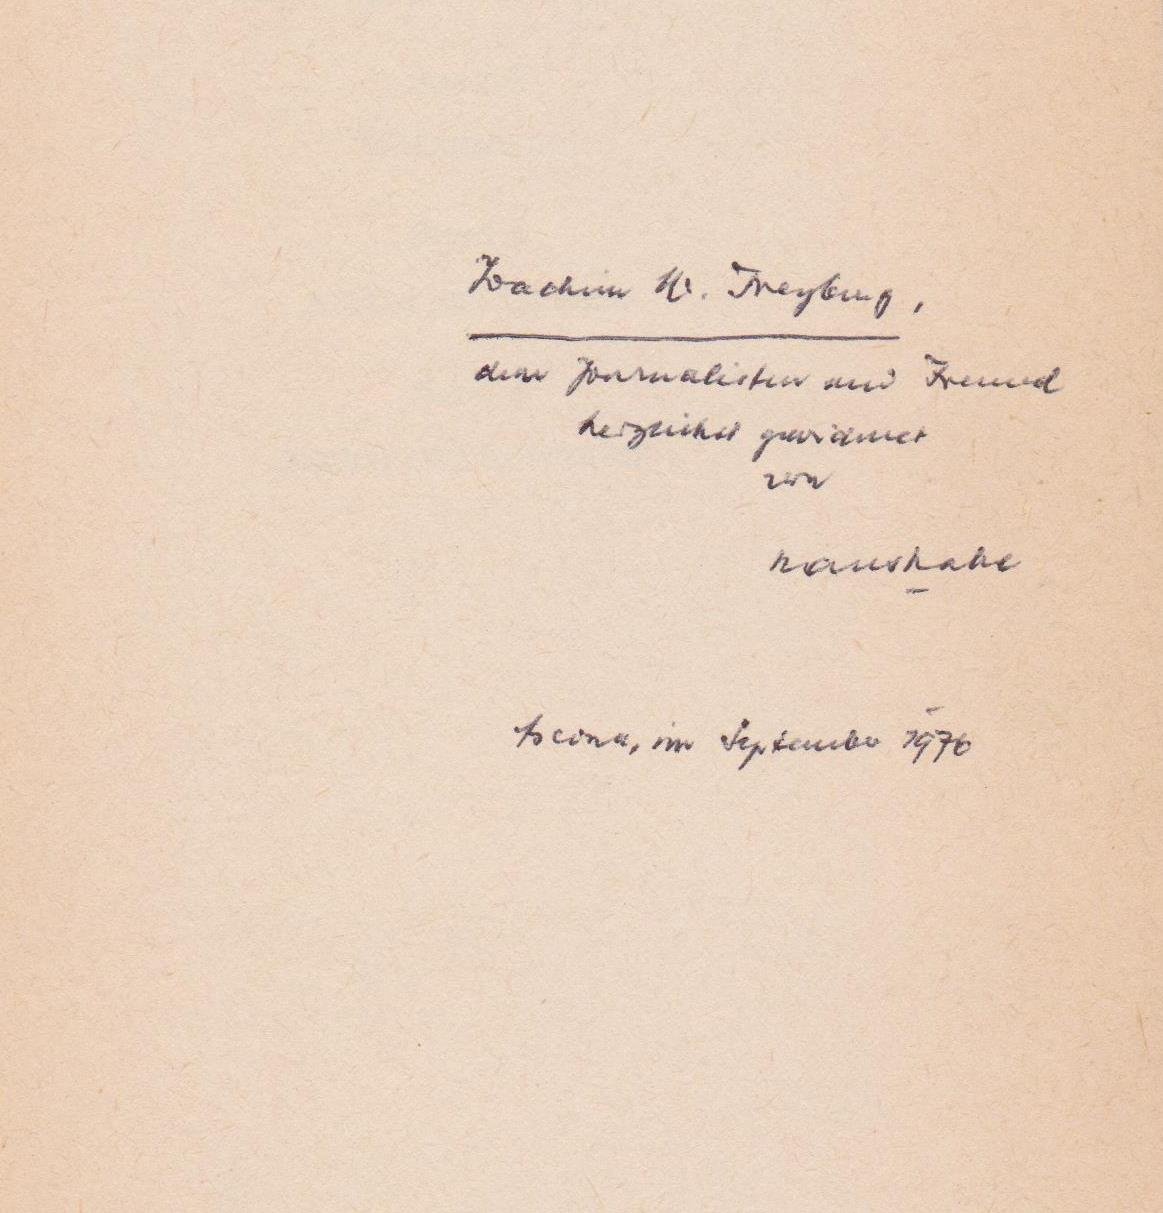 Joachim W. Freyburg,
dem Journalisten und Freund
herzlichst gewidmet
von
hanshabe
Ascona, im September 1976